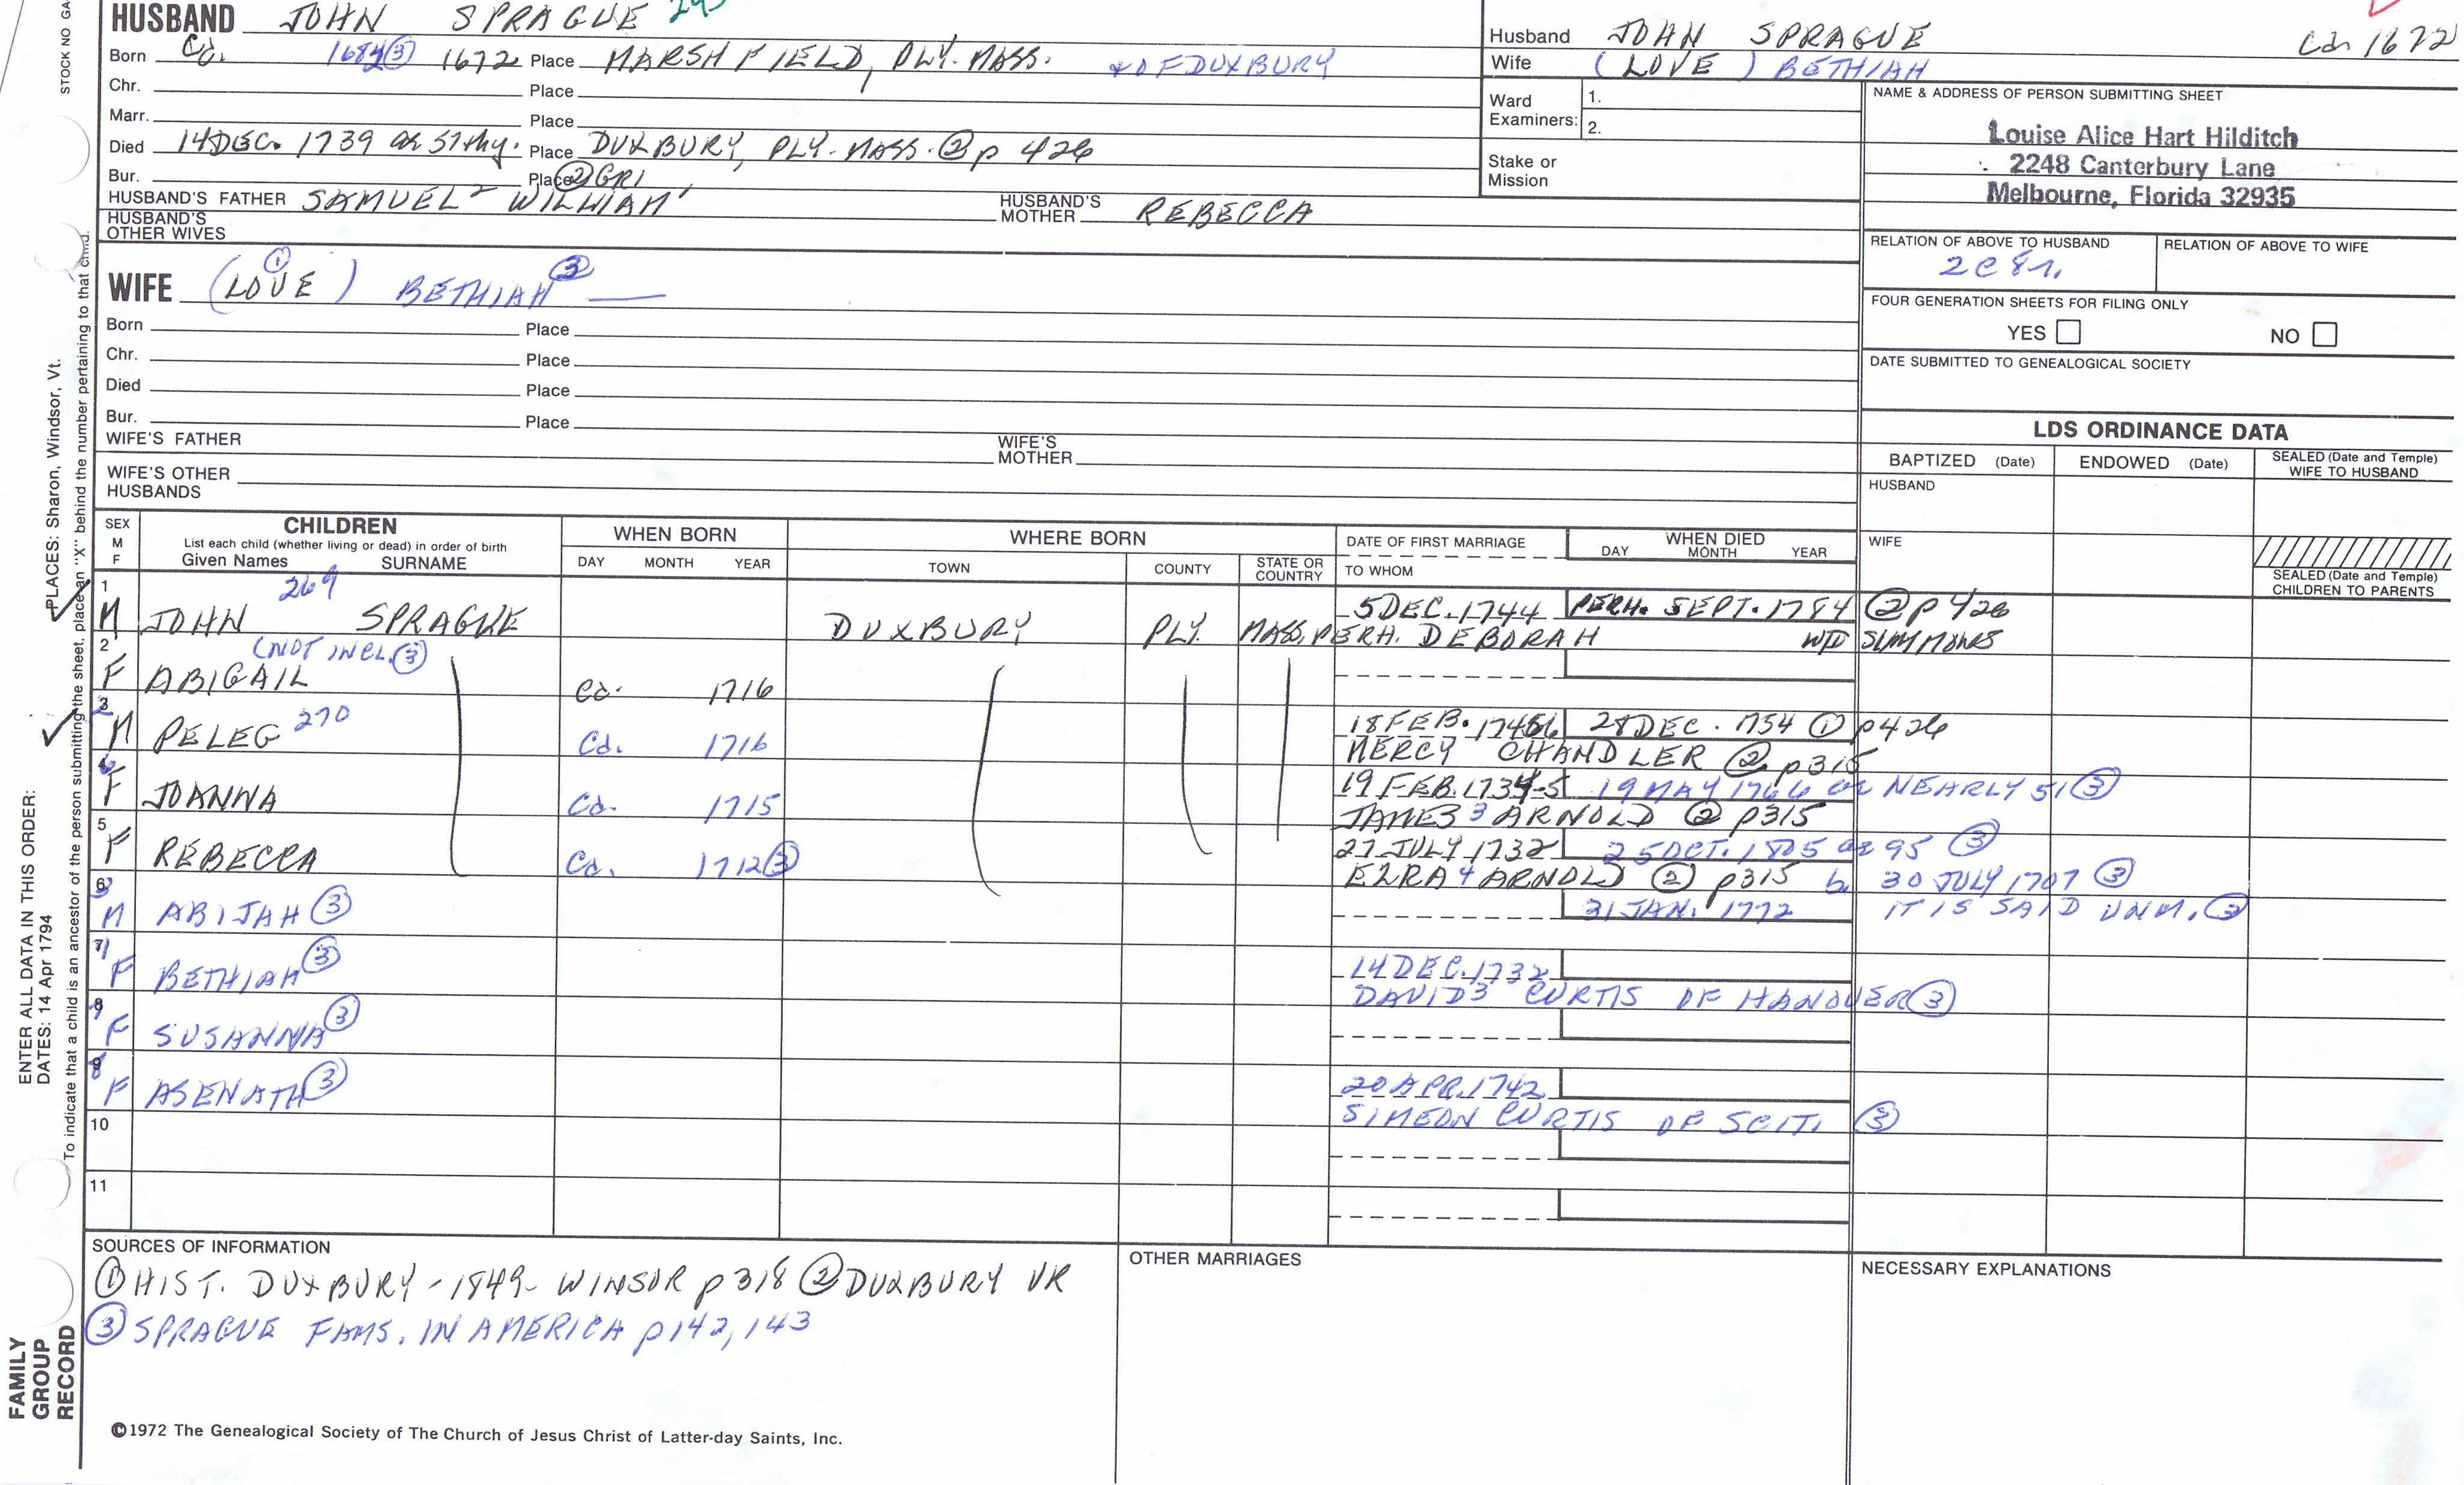 HUSBAND JOHN SPRAGUE
Born Ca. 1672 Place MARSHFIELD, PLY. MASS. & OF DUXBURY
Chr. Place
Marr. Place
Died 14 DEC. 1739 Place DUXBURY, PLY. MASS. ② p 426
Bur. Place ② GR1
HUSBAND'S FATHER SAMUEL² WILLIAM¹ HUSBAND'S MOTHER REBECCA
HUSBAND'S OTHER WIVES
Husband JOHN SPRAGUE Ca. 1672
Wife (LOVE) BETHIAH
Ward Examiners: 1.
2.
Stake or Mission
NAME & ADDRESS OF PERSON SUBMITTING SHEET
Louise Alice Hart Hilditch
2248 Canterbury Lane
Melbourne, Florida 32935
RELATION OF ABOVE TO HUSBAND RELATION OF ABOVE TO WIFE
2C 8r.
FOUR GENERATION SHEETS FOR FILING ONLY
YES NO
DATE SUBMITTED TO GENEALOGICAL SOCIETY
WIFE (LOVE ①) BETHIAH ③
Born Place
Chr. Place
Died Place
Bur. Place
WIFE'S FATHER WIFE'S MOTHER
WIFE'S OTHER HUSBANDS
LDS ORDINANCE DATA
BAPTIZED (Date) ENDOWED (Date) SEALED (Date and Temple) WIFE TO HUSBAND
HUSBAND
WIFE
SEALED (Date and Temple) CHILDREN TO PARENTS
SEX M F
CHILDREN
List each child (whether living or dead) in order of birth
Given Names SURNAME
WHEN BORN
DAY MONTH YEAR
WHERE BORN
TOWN COUNTY STATE OR COUNTRY
DATE OF FIRST MARRIAGE
TO WHOM
WHEN DIED
DAY MONTH YEAR
1 269
M JOHN SPRAGUE DUXBURY PLY. MASS. 5 DEC. 1744 PERH. SEPT. 1784 ② p 426
PERH. DEBORAH WID SIMMONS
2 (NOT INCL. ③)
F ABIGAIL Ca. 1716
3
M PELEG 270 Ca. 1716 18 FEB. 28 DEC. 1754 ① p 426
MERCY CHANDLER ② p 315
4
F JOANNA Ca. 1715 19 FEB. 1734-5 19 MAY 1766 ae NEARLY 51 ③
JAMES³ ARNOLD ② p 315
5
F REBECCA Ca. 1712 ③ 27 JULY 1732 25 OCT. 1805 ae 95 ③
EZRA⁴ ARNOLD ② p 315 b. 30 JULY 1707 ③
6
M ABIJAH ③ 31 JAN. 1772 IT IS SAID UNM. ③
7
F BETHIAH ③ 14 DEC. 1732
DAVID³ CURTIS OF HANOVER ③
8
F SUSANNA ③
9
F ASENATH ③ 20 APR. 1742
SIMEON CURTIS OF SCIT. ③
10
11
SOURCES OF INFORMATION
① HIST. DUXBURY - 1849 - WINSOR p 318 ② DUXBURY VR
③ SPRAGUE FAMS. IN AMERICA p 142, 143
OTHER MARRIAGES
NECESSARY EXPLANATIONS
©1972 The Genealogical Society of The Church of Jesus Christ of Latter-day Saints, Inc.
STOCK NO GA
PLACES: Sharon, Windsor, Vt.
ENTER ALL DATA IN THIS ORDER:
DATES: 14 Apr 1794
To indicate that a child is an ancestor of the person submitting the sheet, place an "X" behind the number pertaining to that child.
FAMILY GROUP RECORD